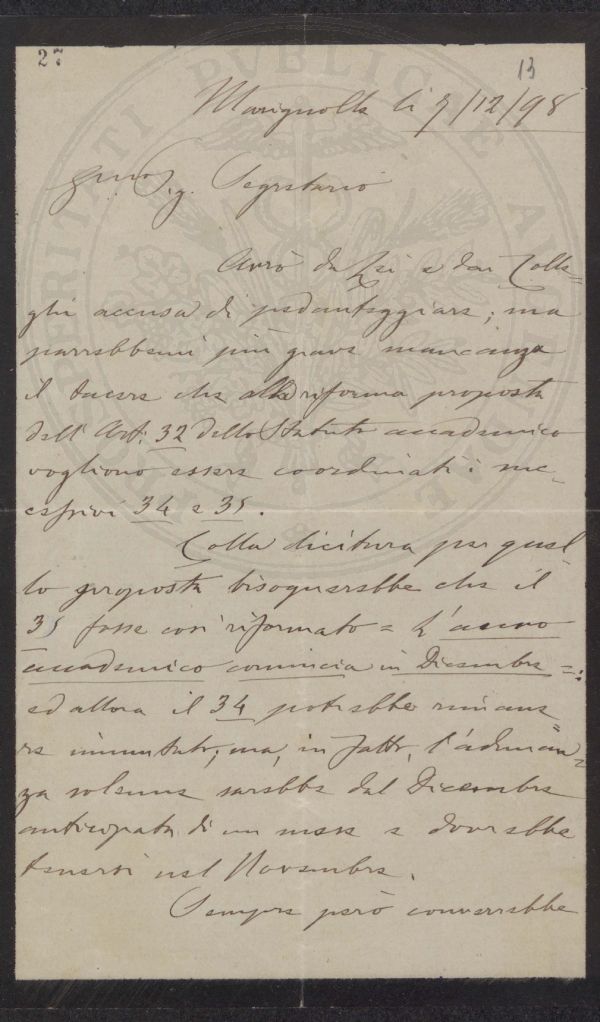 27
13
Marignolle li 7/12/98
Gmo Sig. Segretario
Avrò da Lei e dai Colle=
ghi accusa di pedanteggiare; ma
parrebbemi più grave mancanza
il tacere che alla riforma proposta
dell'Art. 32 dello Statuto accademico
vogliono essere coordinati i suc=
cessivi 34 e 35.
Colla dicitura per quel=
lo proposta bisognerebbe che il
35 fosse così riformato = L'anno
accademico comincia in Dicembre =:
ed allora il 34 potrebbe rimane=
re immutato; ma, in fatto, l'adunan=
za solenne sarebbe dal Dicembre
anticipata di un mese e dovrebbe
tenersi nel Novembre.
Sempre però converrebbe
PROSPERITATI PUBLICAE AUGENDAE